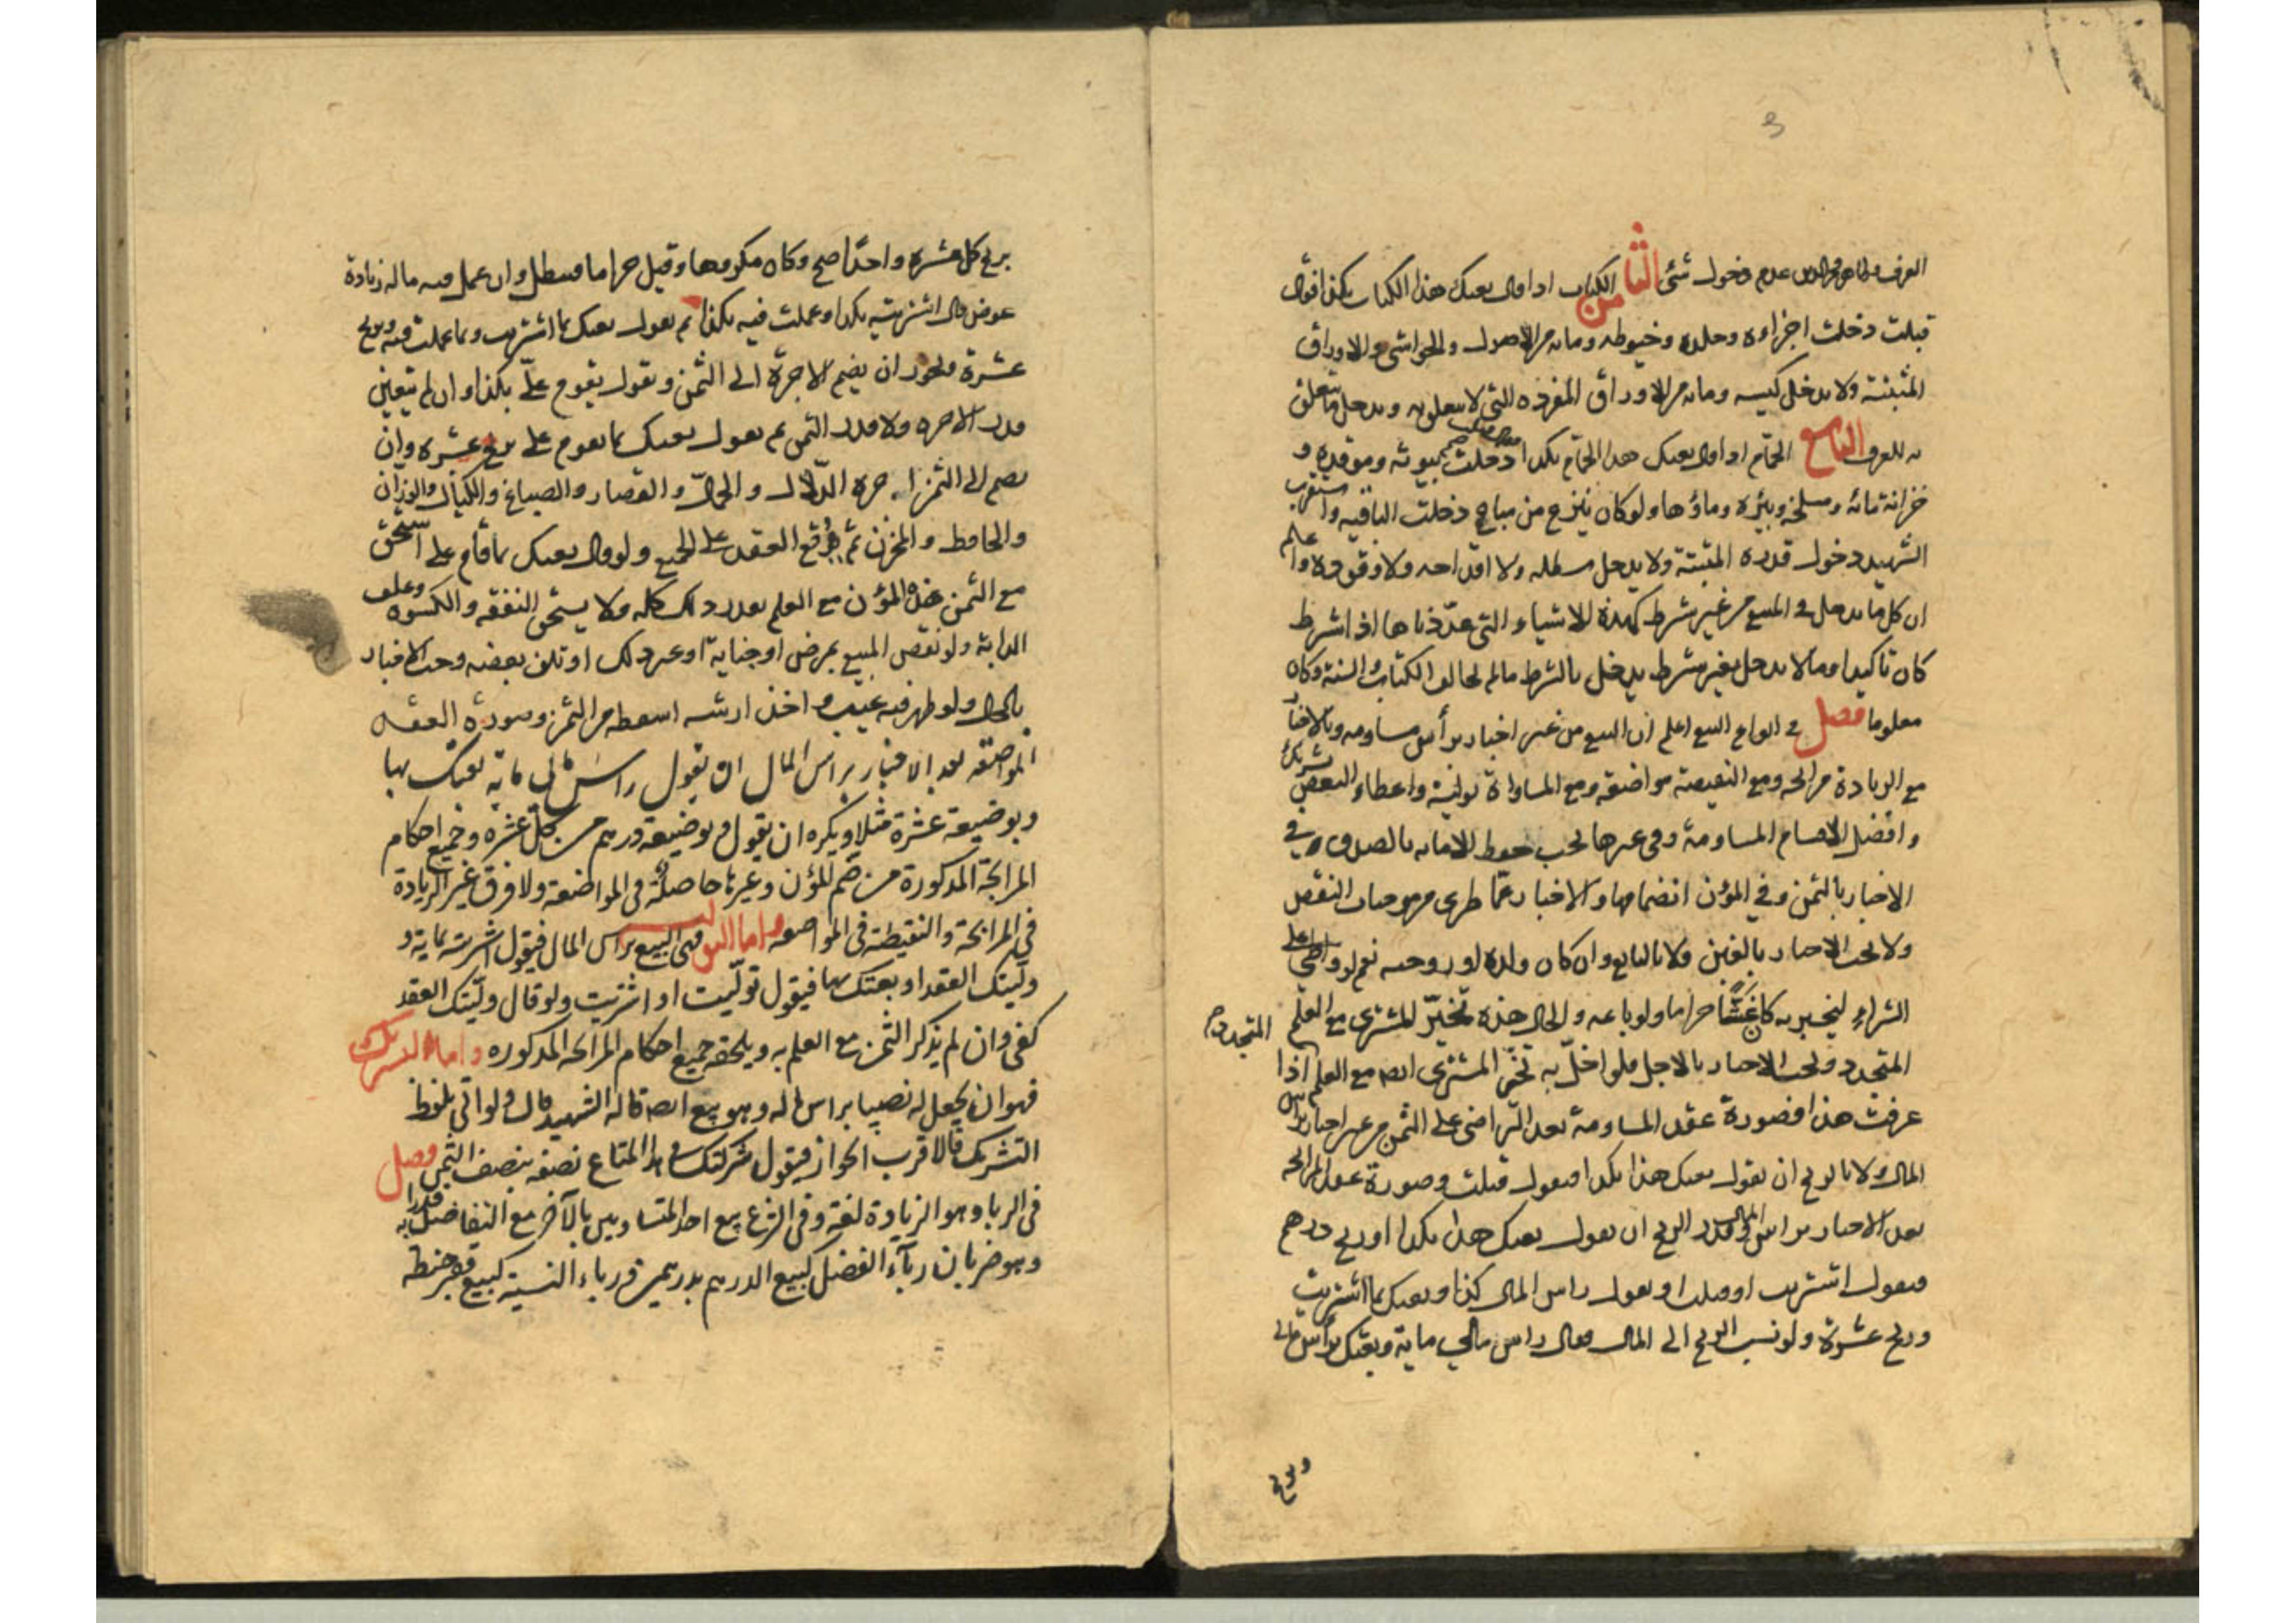 العرف وظاهر فخر الدين عدم دخول شئ الثامن الكتاب اذا قال بعتك هذا الكتاب بكذا فقال
قبلت دخلت اجزاءه وجلده وخيوطه وما به من الاصول والحواشى والاوراق
المثبتة ولا يدخل كيسه وما به من الاوراق المفرده التى لا تتعلق به ويدخل ما يتعلق
به للعرف التاسع الحمّام اذا قال بعتك هذا الحمّام بكذا دخلت بيوته وموقده و
خزانة مائه ومسلخه وبئره وماؤها ولو كان ينزح من مباح دخلت الباقيه واستقرب
الشهيد دخول قدره المثبتة ولا يدخل سطله ولا اقداحه ولا وقوده واعلم
ان كل ما يدخل فى المبيع من غير شرط كهذه الاشياء التى عدّدناها اذا شرط
كان تاكيدا وما لا يدخل بغير شرط يدخل بالشرط ما لم يخالف الكتاب والسنة وكان
معلوما فصل فى انواع البيع اعلم ان البيع من غير اخبار برأس مساومه وبالاخبار
مع الزيادة مرابحه ومع النقيصة مواضعه ومع المساواة تولية واعطاء البعض تشريك
وافضل الاقسام المساومة وفى غيرها يجب حفظ الامانه بالصدق فى
الاخبار بالثمن وفي المؤن انضمامها والاخبار عمّا طرى من موجبات النقص
ولا يجب الاخبار بالغبن ولا بالبايع وان كان ولده او زوجته نعم لو واطئ على
الشراء ليخبر به كان غشّا حراما ولو باعه والحال هذه تخيّر المشترى مع العلم
المتجدد
المتجدد ويجب الاخبار بالاجل فلو اخلّ به تخيّر المشترى ايضا مع العلم اذا
عرفت هذا فصورة عقد المساومة بعد التراضى على الثمن من غير اخبار براس
المال ولا بالربح ان يقول بعتك هذا بكذا فيقول قبلت وصورة عقد المرابحه
بعد الاخبار براس المال وقدر الربح ان يقول بعتك هذا بكذا وربح درهم
فيقول اشتريت او قبلت او يقول راس المال كذا وبعتك بما اشتريت
وربح عشرة ولو نسب الربح الى المال فقال راس مالي ماية وبعتك براس مالى
وربح
بربح كل عشرة واحدًا صح وكان مكروها وقيل حراما فيبطل وان عمل فيه ما له زيادة
عوض قال اشتريته بكذا وعملت فيه بكذا ثم يقول بعتك بما اشتريت وبما عملت فيه وربح
عشرة ويجوز ان يضم الاجرة الى الثمن ويقول يقوم علىّ بكذا وان لم يتعين
قدر الاجره ولا قدر الثمن ثم يقول بعتك بما يقوم على بربح عشره وان
يضم الى الثمن اجرة الدّلال والحمّال والقصار والصباغ والكيّال والوزان
والحافظ والمخزن ثم يوقع العقد على الجميع ولو قال بعتك بما قام على استحق
مع الثمن هذه المؤن مع العلم بقدر ذلك كله ولا يستحق النفقه والكسوه وعلف
الدابة ولو نقص المبيع بمرض او جناية او غير ذلك او تلف بعضه وجب الاخبار
بالحال ولو ظهر فيه عيب واخذ ارشه اسقطه من الثمن وصورة العقد
المواضعه بعد الاخبار براس المال ان يقول راس مالى ماية بعتك بها
وبوضيعة عشرة مثلا ويكره ان يقول وبوضيعة درهم من كل عشره وجميع احكام
المرابحة المذكورة من ضم المؤن وغيرها حاصلة فى المواضعة ولا فرق غير الزيادة
في المرابحة والنقيصة فى المواضعه واما التوليه فهى البيع براس المال فيقول اشتريته بماية و
ولّيتك العقد او بعتك بها فيقول تولّيت او اشتريت ولو قال ولّيتك العقد
كفى وان لم يذكر الثمن مع العلم به ويلحقه جميع احكام المرابحه المذكوره واما التشريك
فهو ان يجعل له نصيبا براس ماله وهو بيع ايضا قاله الشهيد قال ولو اتى بلفظ
التشريك فالاقرب الجواز فيقول شركتك فى هذا المتاع نصفه بنصف الثمن فصل
فى الربا وهو الزيادة لغة وفى الشرع بيع احد المتساويين بالآخر مع التفاضل قدرا به
وهو ضربان رباء الفضل كبيع الدرهم بدرهمين ورباء النسية كبيع قفيز حنطه